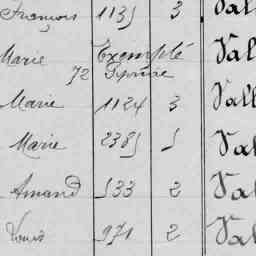 François 1135 3 Vall
Marie Exempté Val
72
Marie 1124 3 Vall
Marie 2385 1 Val
Amand 533 2 Val
Louis 971 2 Val